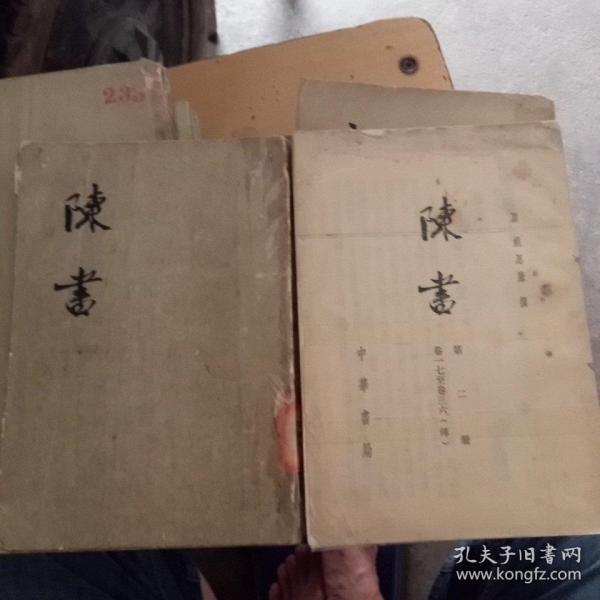 233
陳書
陳書
唐 姚思廉 撰
第二册
卷一七至卷三六(傳)
中華書局
孔夫子旧书网
www.kongfz.com